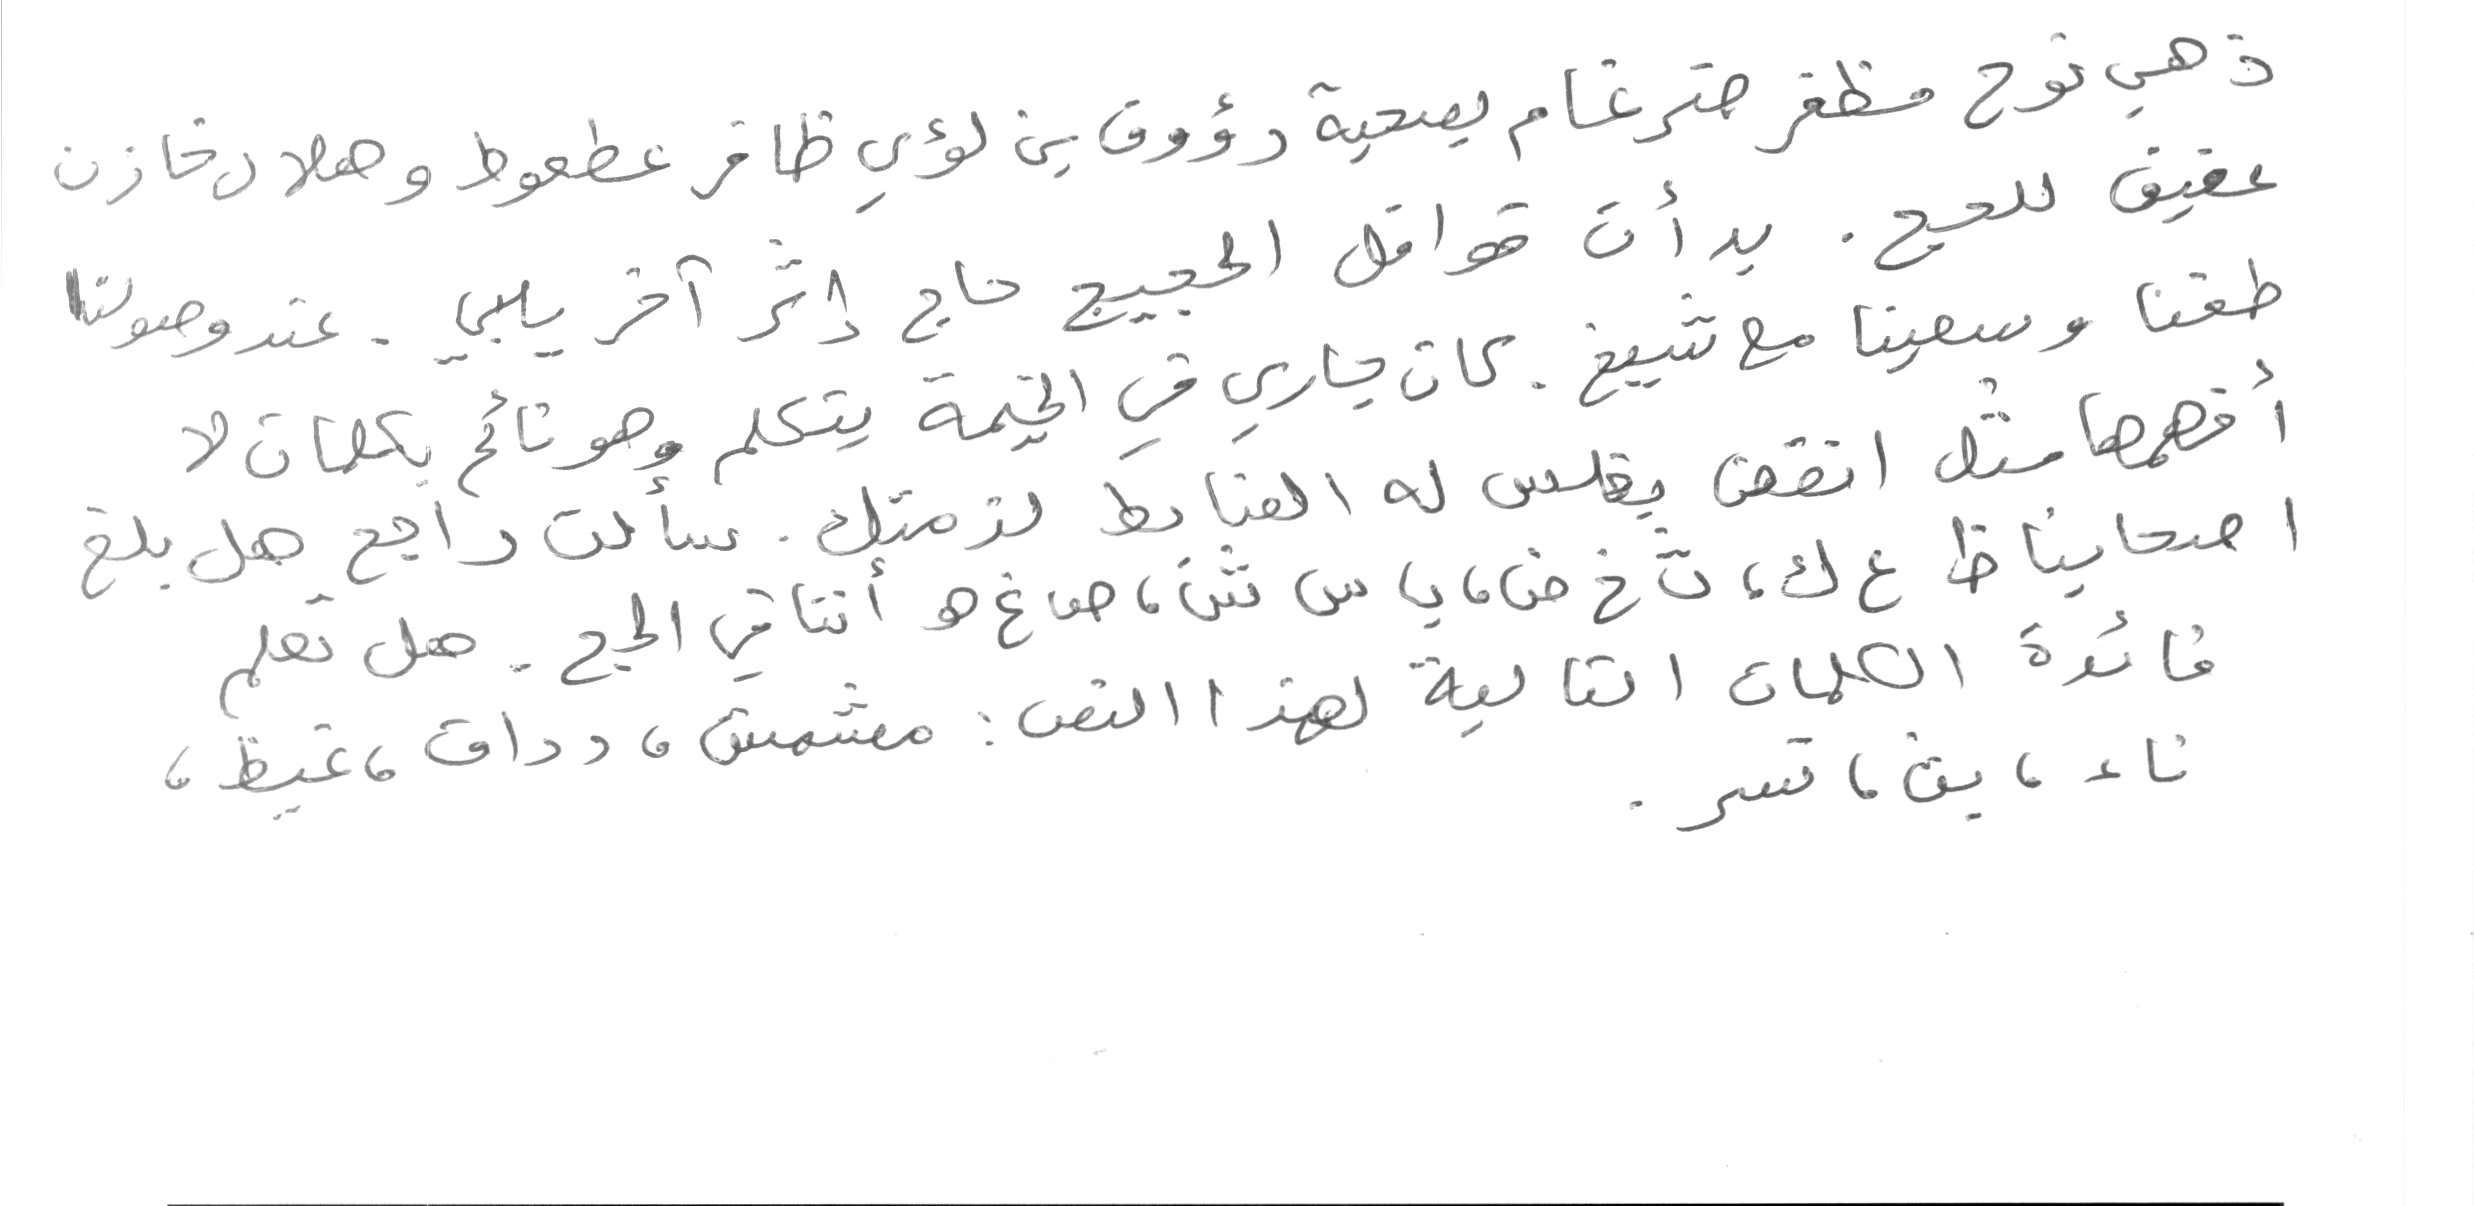 ذهب نوح مظفر ضرغام بصحبة رؤوف بن لؤي ظافر عطعوط وهلال خازن
عفيف للحج. بدأت قوافل الحجيج حاج إثر آخر يلبي. عند وصولنا
طفنا وسعينا مع شيخ. كان جاري في الخيمة يتكلم وهو نائم بكلمات لا
أفهمها مثل انقض بغلس له الضابط لذ مثلك. سألت راجح هل بلغ
اصحابنا ظ غ ك، ث خ ض، با س شذ، صاغ هو أثنا في الحج. هل تعلم
فائدة الكلمات التالية لهذا النص: مشمش، دراق، غيظ،
ناء، بث، تسر.